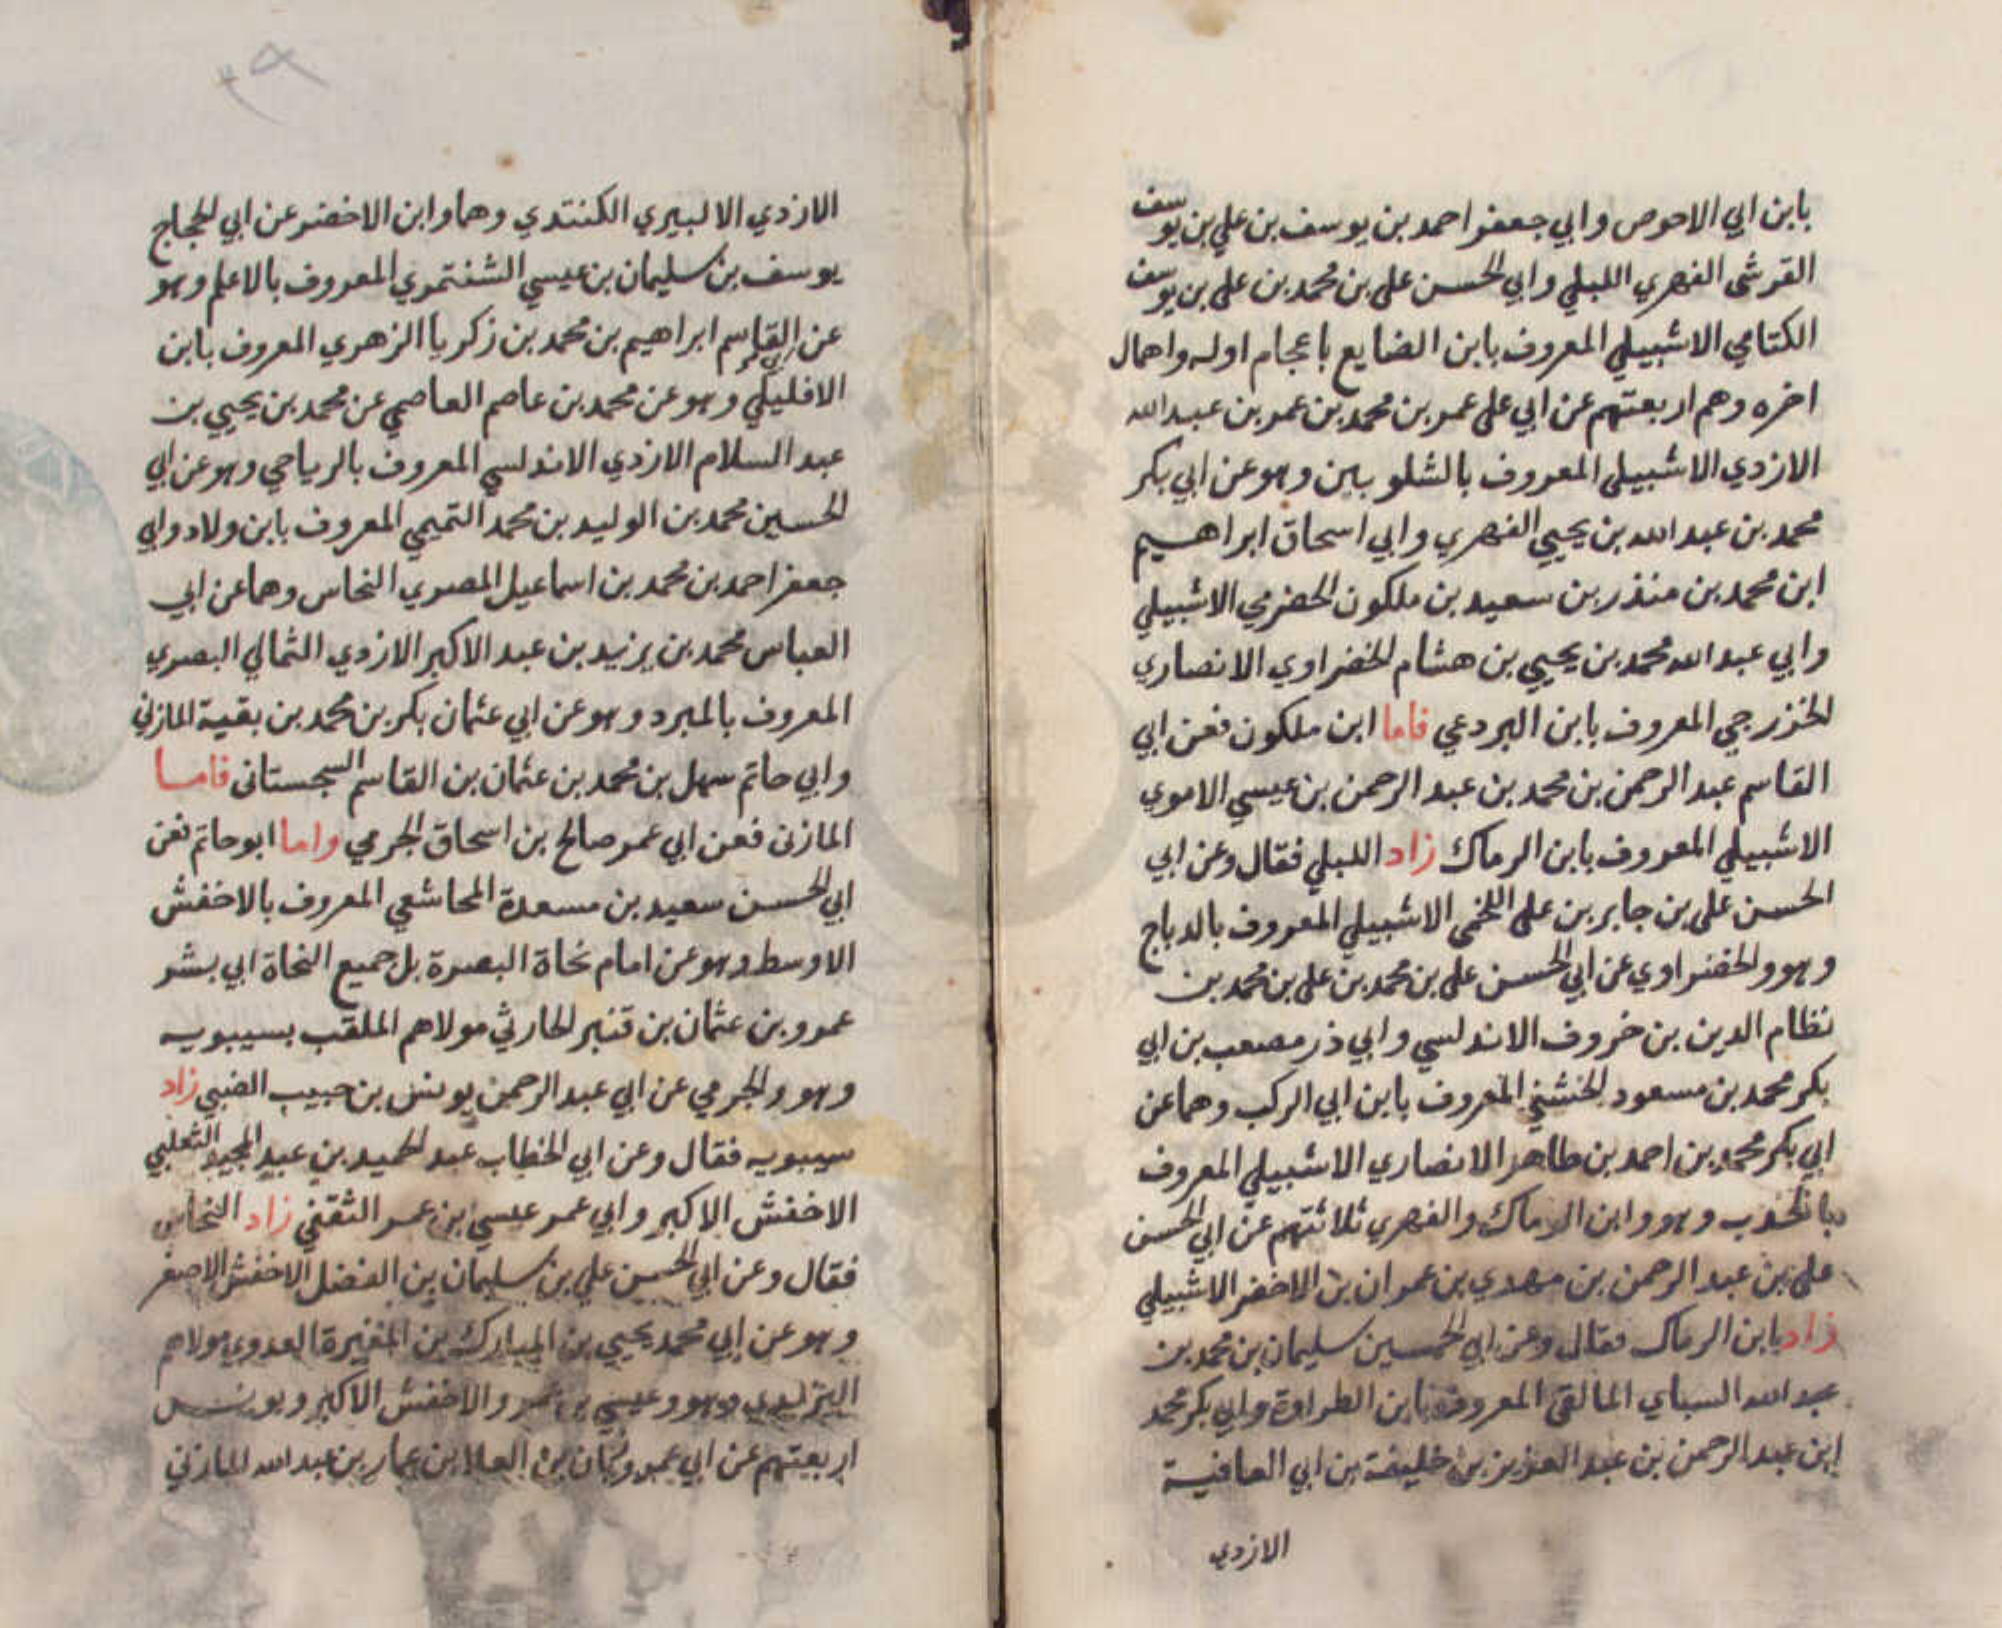 بابن ابي الاحوص وابي جعفر احمد بن يوسف بن علي بن يوسف
القرشى الفهري اللبلي وابي الحسن على بن محمد بن على بن يوسف
الكتامي الاشبيلي المعروف بابن الضايع باعجام اوله واهمال
اخره وهم اربعتهم عن ابي على عمر بن محمد بن عمر بن عبد الله
الازدي الاشبيلى المعروف بالشلوبين وهو عن ابي بكر
محمد بن عبد الله بن يحيي الفهري وابي اسحاق ابراهيم
ابن محمد بن منذر بن سعيد بن ملكون الحضرمي الاشبيلي
وابي عبد الله محمد بن يحيي بن هشام الخضراوي الانصاري
الخزرجي المعروف بابن البردعي فاما ابن ملكون فعن ابي
القاسم عبد الرحمن بن محمد بن عبد الرحمن بن عيسي الاموي
الاشبيلي المعروف بابن الرماك زاد اللبلي فقال وعن ابي
الحسن على بن جابر بن على اللخمى الاشبيلي المعروف بالدباج
وهو والخضراوي عن ابي الحسن على بن محمد بن على بن محمد بن
نظام الدين بن خروف الاندلسي وابي ذر مصعب بن ابي
بكر محمد بن مسعود الخشني المعروف بابن ابي الركب وهما عن
ابي بكر محمد بن احمد بن طاهر الانصاري الاشبيلي المعروف
بالخدب وهو وابن الرماك والفهري ثلاثتهم عن ابي الحسن
على بن عبد الرحمن بن مهدي بن عمران بن الاخضر الاشبيلي
زاد ابن الرماك فقال وعن ابي الحسين سليمان بن محمد بن
عبد الله السباي المالقى المعروف بابن الطراوة وابي بكر محمد
ابن عبد الرحمن بن عبد العزيز بن خليفة بن ابي العافية
الازدي
الازدي الالبيري الكنتدي وهما وابن الاخضر عن ابي الحجاج
يوسف بن سليمان بن عيسي الشنتمري المعروف بالاعلم وهو
عن ابي القاسم ابراهيم بن محمد بن زكريا الزهري المعروف بابن
الافليلي وهو عن محمد بن عاصم العاصمي عن محمد بن يحيي بن
عبد السلام الازدي الاندلسي المعروف بالرياحي وهو عن ابي
الحسين محمد بن الوليد بن محمد التميمي المعروف بابن ولاد وابي
جعفر احمد بن محمد بن اسماعيل المصري النحاس وهما عن ابي
العباس محمد بن يزيد بن عبد الاكبر الازدي الثمالي البصري
المعروف بالمبرد وهو عن ابي عثمان بكر بن محمد بن بقية المازني
وابي حاتم سهل بن محمد بن عثمان بن القاسم السجستانى فاما
المازنى فعن ابي عمر صالح بن اسحاق الجرمي واما ابو حاتم فعن
ابي الحسن سعيد بن مسعدة المجاشعي المعروف بالاخفش
الاوسط وهو عن امام نحاة البصرة بل جميع النحاة ابي بشر
عمرو بن عثمان بن قنبر الحارثي مولاهم الملقب بسيبويه
وهو والجرمي عن ابي عبد الرحمن يونس بن حبيب الضبي زاد
سيبويه فقال وعن ابي الخطاب عبد الحميد بن عبد المجيد الثعلبي
الاخفش الاكبر وابي عمر عيسي بن عمر الثقفي زاد النحاس
فقال وعن ابي الحسن علي بن سليمان بن الفضل الاخفش الاصغر
وهو عن ابي محمد يحيي بن المبارك بن المغيرة العدوي مولاهم
اليزيدي وهو وعيسي بن عمر والاخفش الاكبر ويونس
اربعتهم عن ابي عمرو زبان بن العلا بن عمار بن عبد الله المازني